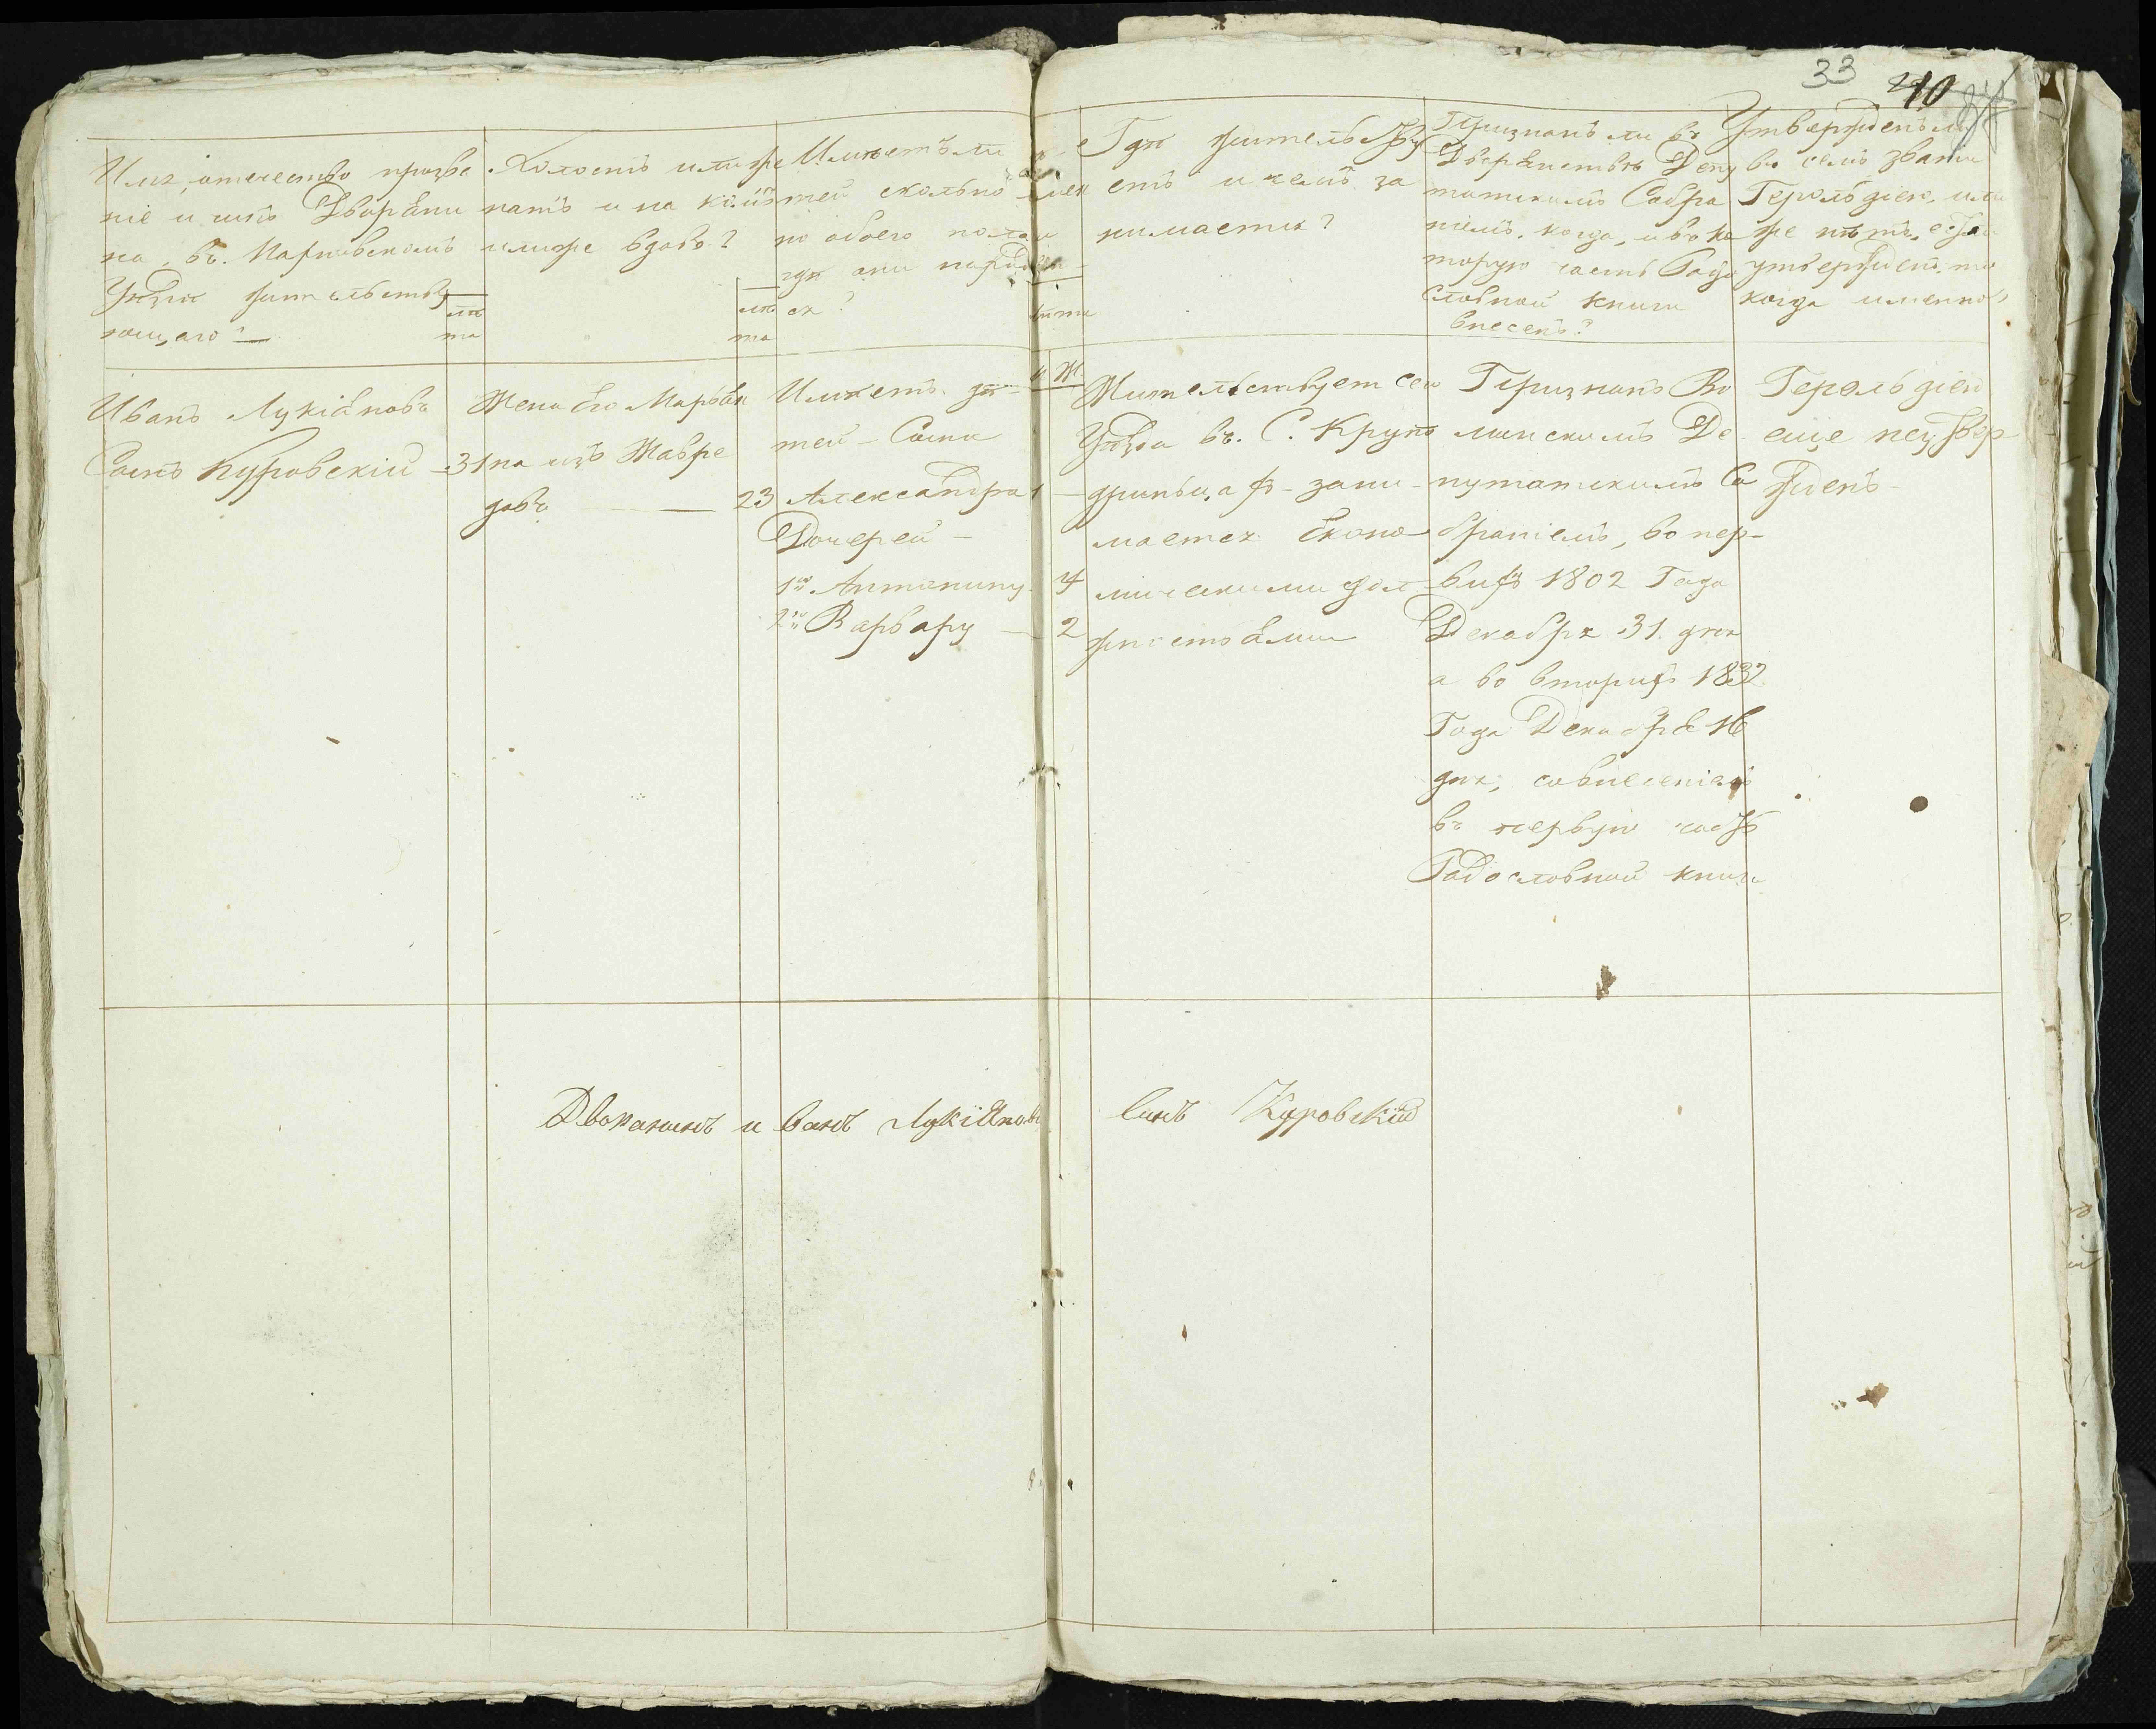 33 40
Имя, отечество прозва
ніе и лѣтъ Дворяни
на, въ
Уѣздѣ жительству
ющаго?
лѣ
та
Холостъ или же
натъ и на комъ
или же вдовъ?
лѣ
та
Имѣетъ ли
тей сколько
но обоего пола и
гдѣ они
ся?
лѣта
Гдѣ жительству
етъ и чемъ за
нимается?
Признанъ ли въ
Дворянствѣ Депу
татскимъ Собра
ніемъ, когда, и въ ко
торую часть Родо
словной книги
внесенъ?
Утвержденъ ли
въ семъ званіи
Герольдіею, или
же нѣтъ, если
утвержденъ, то
когда именно?
Иванъ Лукіановъ
Сынъ Куровскій 31
Жена Его Маріан
на изъ Жавре
довъ 23
Имѣетъ дѣ-
тей - Сына
Александра 1
Дочерей -
1ю Антонину 4
2ю Варвару 2
Ж.
Жительствуетъ сего
Уѣзда въ С. Крупо
дринцахъ - зани-
мается Эконо-
мическими дол-
жностями
Признанъ Во
лынскимъ Де-
путатскимъ Со
браніемъ, во пер-
выхъ 1802 Года
Декабря 31. дня
а во вторыхъ 1832
Года Декабря 16
дня, со внесеніемъ
въ первую часть
Родословной книги
Герольдіею
еще неутвер-
жденъ -
Дворанинъ иванъ Лукіяновъ Синъ Куровскій